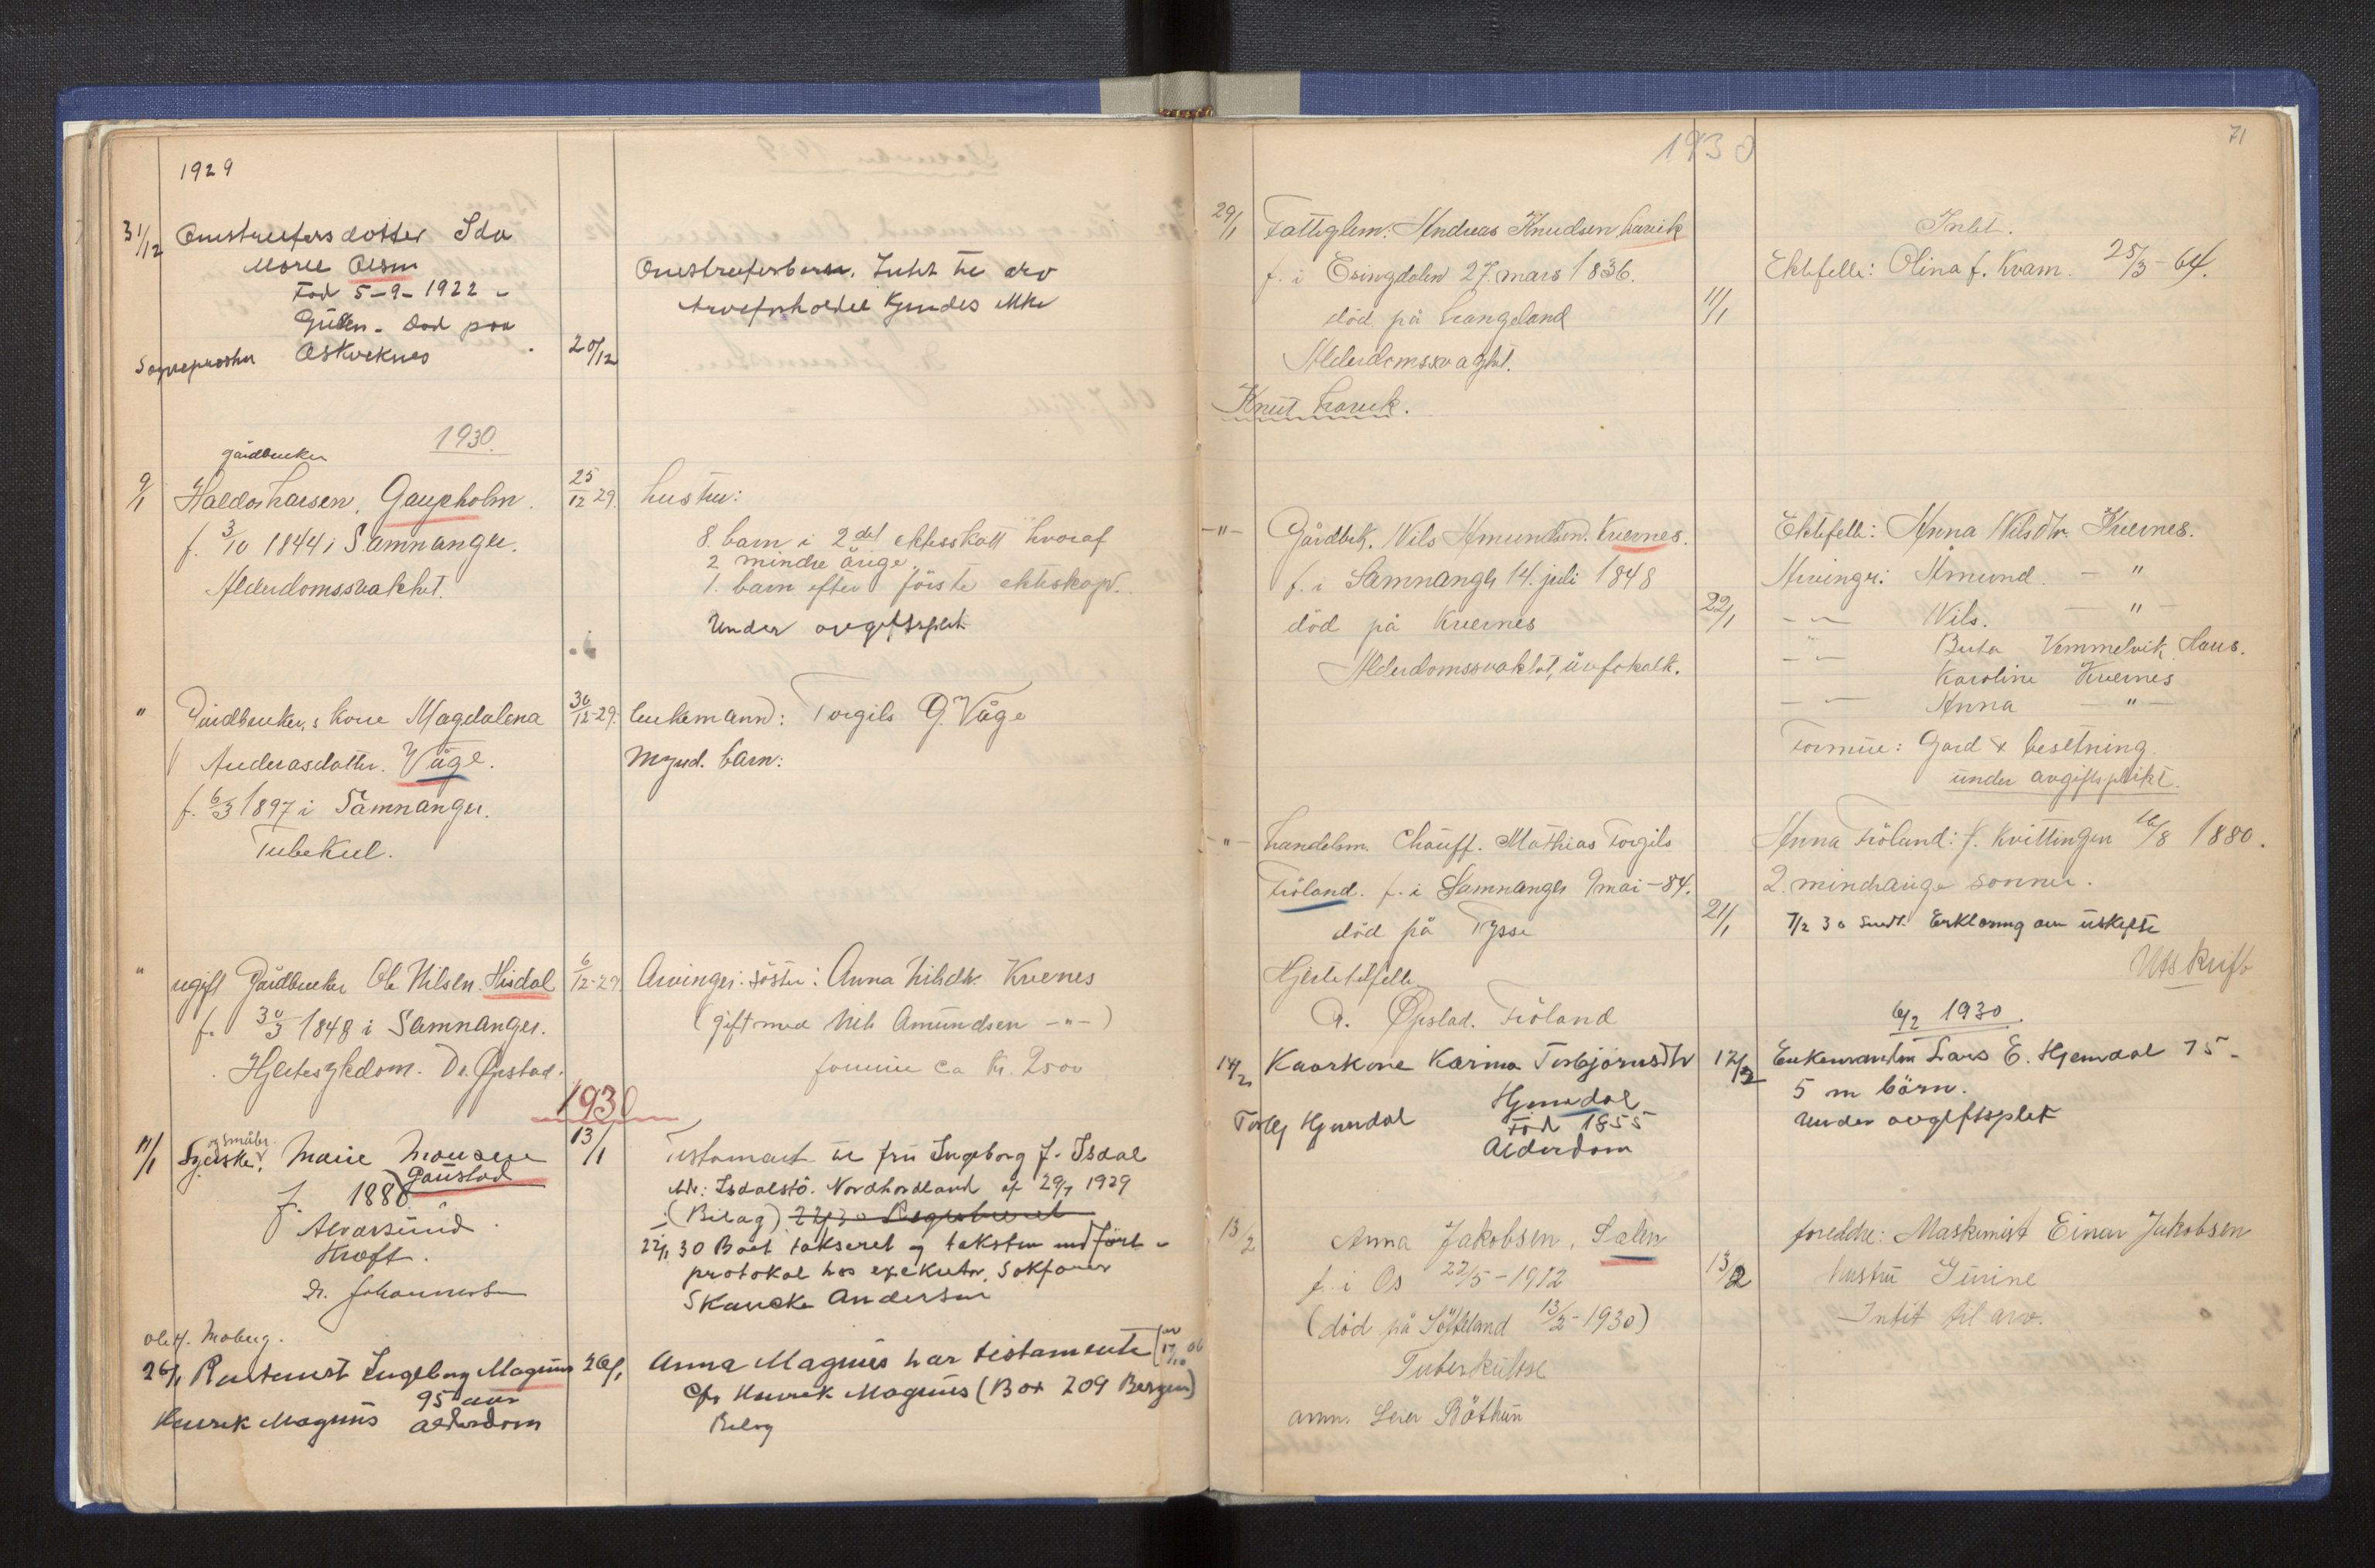 1929
31/12 Omstreifersdotter Ida
Marie Olsen
Fød 5-9-1922 -
Gulen - Død paa
Sogneprosten Askvoknes 20/12
Omstreiferbarn. Intet til arv
Arveforholdet kjendes ikke
1930.
gårdbruker
9/1 Haldor Larsen, Gaupholm. 25/12 29.
f. 3/10 1844 i Samnanger.
Alderdomssvakhet.
hustru:
8. barn i 2det ekteskatt hvoraf
2 mindre årige.
1. barn efter förste ekteskap.
Under avgiftsplikt
" Gårdbruker,s kone Magdalena 30/12-29.
Andreasdatter. Våge.
f. 6/3 1897 i Samnanger.
Tuberkul.
Enkemand: Torgils G. Våge
Mynd. barn:
" ugift Gårdbruker Ole Nilsen. Hisdal 6/12-29.
f. 30/3 1848 i Samnanger.
Hjertesykdom. Dr. Øpstad.
Arvinger: söster: Anna Nilsdtr. Kvernes
(gift med Nils Amundsen -"-)
formue ca kr. 2500
1930
11/1 og småbr. Syerske. Marie Monsen 13/1
Gaustad
f. 1880
Alversund.
Kræft.
Dr. Johannesen
Testament til fru Ingeborg J. Isdal
Adr: Isdalstö. Nordhordland af 29/7 1929
(Bilag) 22/1 30 Registreret
22/1 30 Boet takseret og taksten indfört -
protokol hos exekutor, Sakförer
Skancke Andersen
Ole H. Moberg.
26/1 Rentenist Ingeborg Magnus 26/1
95 aar
Henrik Magnus Alderdom
Anna Magnus har testamente (av 17/10 06
Cfr Henrik Magnus (Box 209 Bergen)
Bilag
1930
71
29/1 Fattiglem: Andreas Knudsen Lavik
f. i Exingdalen 27. mars 1836.
död på Langeland 11/1
Alderdomssvaghet.
Knut Lavik.
Intet.
Ektefelle: Olina f. Kvam. 25/3-64.
-"- Gårdbrk. Nils Amundsen. Kvernes.
f. i Samnanger 14. juli 1848
död på Kvernes 22/1
Alderdomssvakhet, åreforkalk.
Ektefelle: Anna Nilsdtr. Kvernes.
Arvinger: Åmund. - "
- - Nils. - " -
- - Berta Vemmelvik, Haus.
Karoline Kvernes
- - Anna - " -
Formue: Gard & besetning.
under avgiftsplikt.
-"- Handelsm. Chauff. Mathias Torgils
Fröland. f. i Samnanger 9 mai -84.
död på Tysse 21/1
Hjertetilfelle
Dr. Øpstad. Fröland
Anna Fröland: f. Kvittingen 16/8 1880.
2. mindreårige sönner.
7/2 30 Sendt Erklæring om uskifte
Utskrift
6/2 1930.
14/2 Kaarkone Karina Torbjørnsdtr 12/2
Hjemdal
Torlej Hjemdal Fød 1855
Alderdom
Enkemanden Lars E. Hjemdal 75-
5 m börn.
Under avgiftsplikt
13/2 Anna Jakobsen, Salen
f. i Os 22/5-1912 13/2
(död på Söfteland 13/2-1930)
Tuberkulose
anm. Leier Röthun
foreldre: Maskinist Einar Jakobsen
hustru Gurine
Intit til arv.